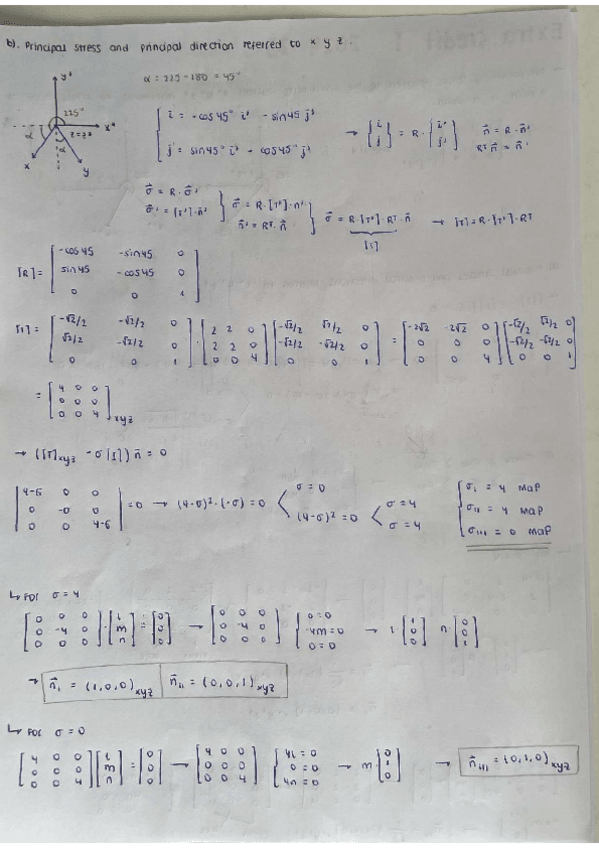 b). Principal stress and principal direction referred to x y z.
y' 225° x' z=z' α α x y
α = 225 - 180 = 45°
i = -cos 45° i' - sin45 j'
j = sin45° i' - cos45° j'
→ {i j} = R · {i' j'}
n = R · n'
Rᵀ n = n'
σ = R · σ'
σ' = [T'] · n'
σ = R · [T'] · n'
n' = Rᵀ · n
σ = R · [T'] · Rᵀ · n → [T] = R · [T'] · Rᵀ
[T]
[R] = [-cos 45 -sin45 0; sin45 -cos45 0; 0 0 1]
[T] = [-√2/2 -√2/2 0; √2/2 -√2/2 0; 0 0 1] · [2 2 0; 2 2 0; 0 0 4] [-√2/2 √2/2 0; -√2/2 -√2/2 0; 0 0 1] = [-2√2 -2√2 0; 0 0 0; 0 0 4] [-√2/2 √2/2 0; -√2/2 -√2/2 0; 0 0 1]
= [4 0 0; 0 0 0; 0 0 4] xyz
→ ([T]xyz - σ[I]) n = 0
|4-σ 0 0; 0 -σ 0; 0 0 4-σ| = 0 → (4-σ)² · (-σ) = 0
σ = 0
(4-σ)² = 0
σ = 4
σ = 4
σI = 4 MaP
σII = 4 MaP
σIII = 0 MaP
↳ For σ = 4
[0 0 0; 0 -4 0; 0 0 0] · [l; m; n] = [0; 0; 0] → [0 0 0; 0 -4 0; 0 0 0] {0=0; -4m=0; 0=0} → l [1; 0; 0] n [0; 0; 1]
→ nI = (1,0,0)xyz nII = (0,0,1)xyz
↳ For σ = 0
[4 0 0; 0 0 0; 0 0 4] [l; m; n] = [0; 0; 0] → [4 0 0; 0 0 0; 0 0 4] {4l = 0; 0 = 0; 4n = 0} → m [0; 1; 0] → nIII = (0,1,0)xyz